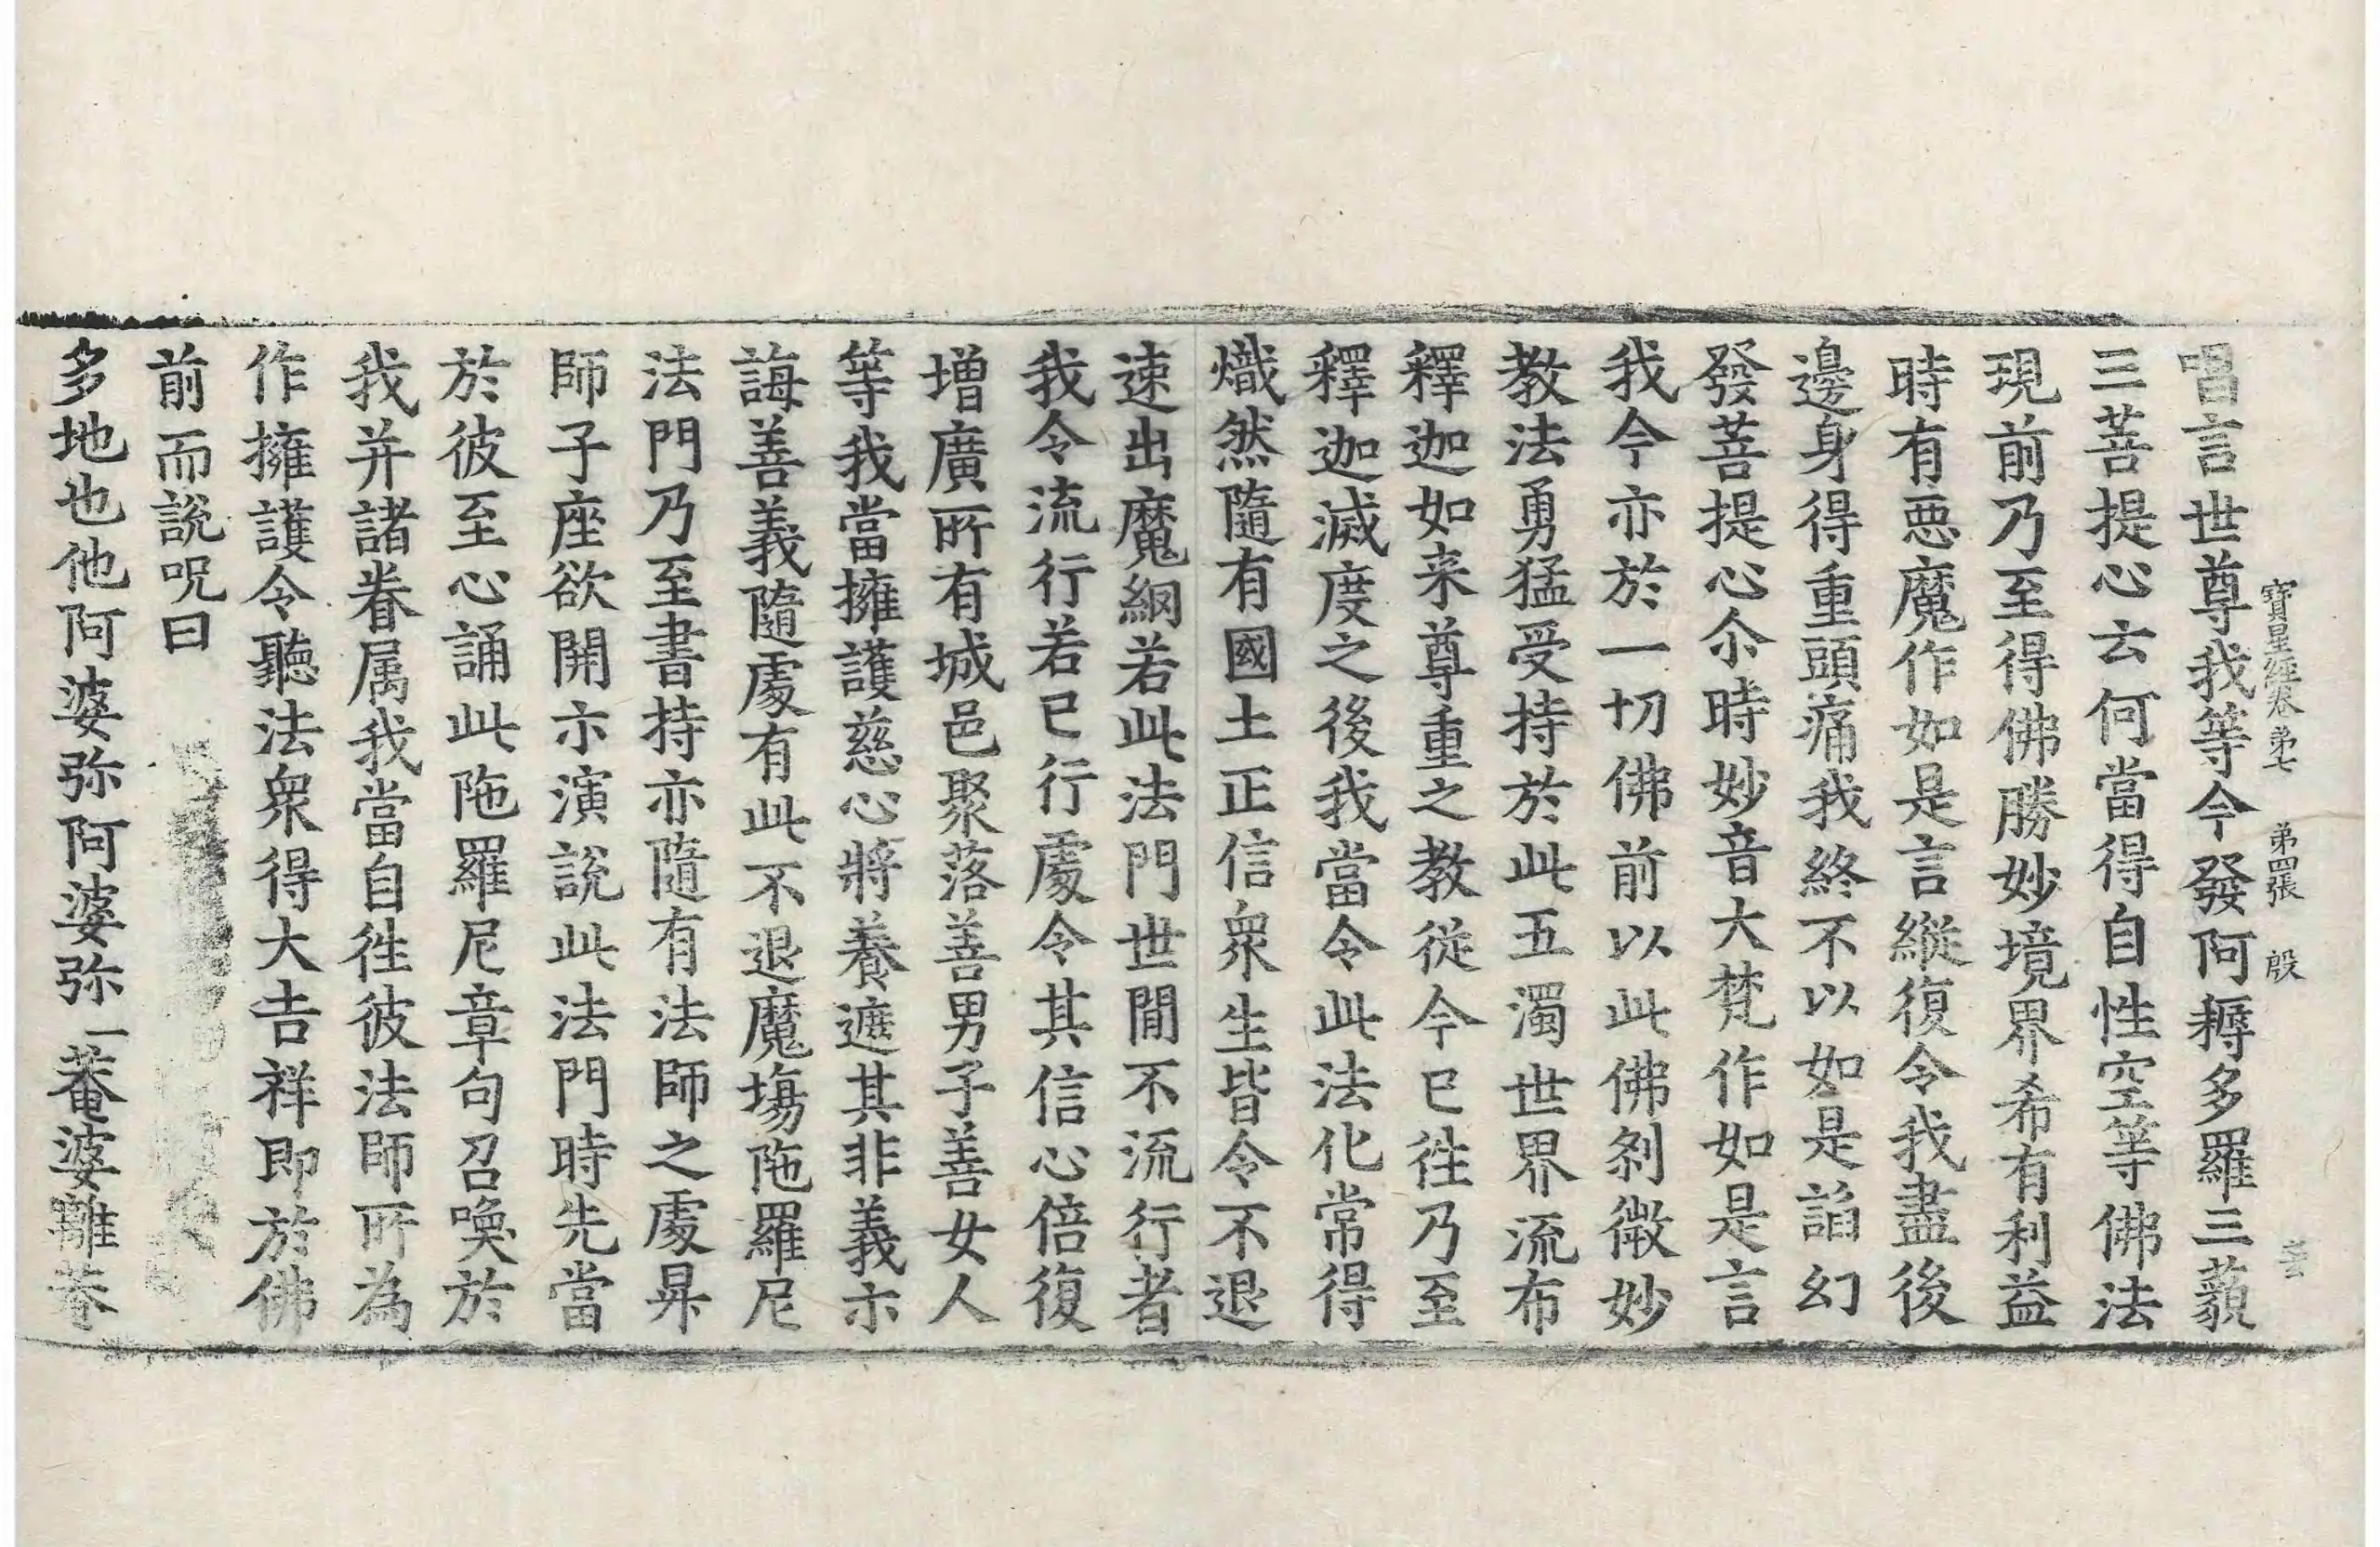 寶星經卷第七 第四張 殷
唱言世尊我等今發阿耨多羅三藐
三菩提心云何當得自性空等佛法
現前乃至得佛勝妙境界希有利益
時有惡魔作如是言縱復令我盡後
邊身得重頭痛我終不以如是謟幻
發菩提心尒時妙音大梵作如是言
我今亦於一切佛前以此佛剎微妙
教法勇猛受持於此五濁世界流布
釋迦如来尊重之教從今已往乃至
釋迦滅度之後我當令此法化常得
熾然隨有國土正信衆生皆令不退
速出魔網若此法門世間不流行者
我令流行若已行處令其信心倍復
增廣所有城邑聚落善男子善女人
等我當擁護慈心將養遮其非義示
誨善義隨處有此不退魔塲陁羅尼
法門乃至書持亦隨有法師之處昇
師子座欲開示演說此法門時先當
於彼至心誦此陁羅尼章句召喚於
我并諸眷属我當自往彼法師所為
作擁護令聽法衆得大吉祥即於佛
前而說呪曰
多地也他阿婆弥阿婆弥一菴婆離菴